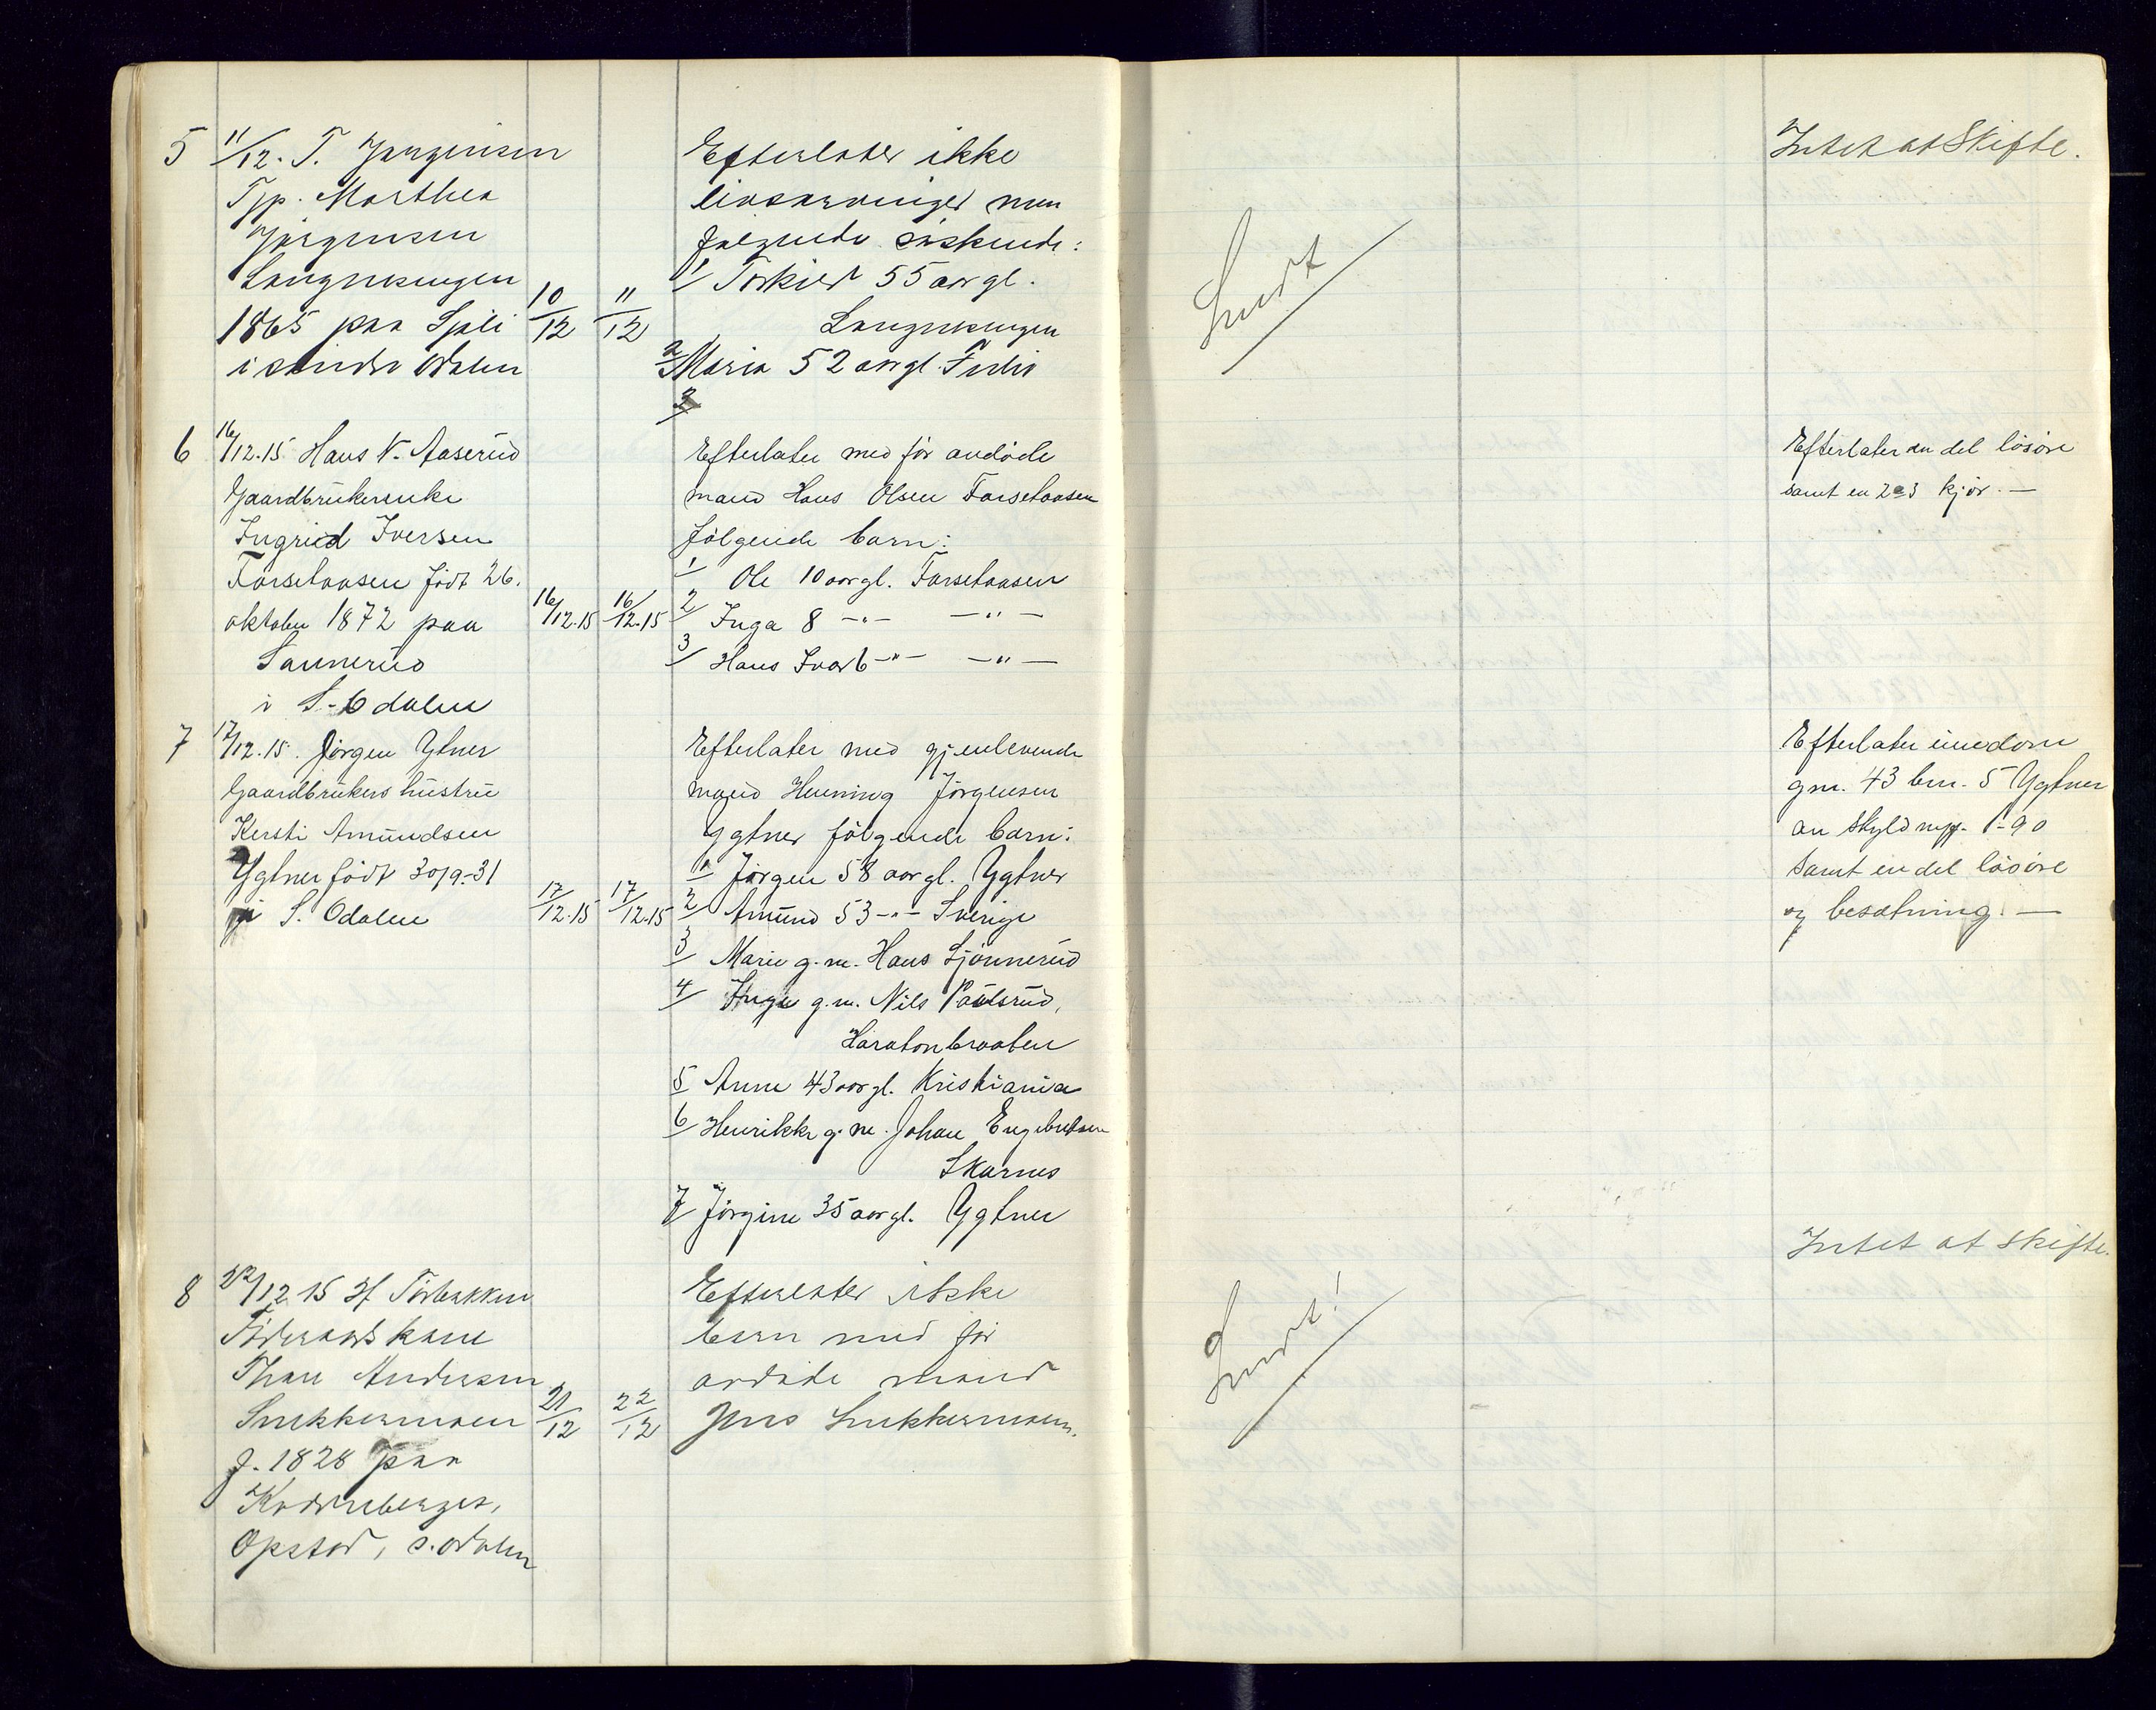 5 11/12. T. Jørgensen
Tjp. Marthea
Jørgensen
Langnæsungen
1865 paa Sjøli
i søndre Odalen
10/12 11/12
Efterlater ikke
livsarvinger men
følgende søskende:
1/ Torkild 55 aar gl.
Langnæsungen
2/ Maria 52 aar gl.
3/
Snart
Intet at Skifte.
6 16/12.15 Hans N. Aaserud
Gaardbrukerenke
Ingrid Iversen
Forsetaasen født 26.
oktober 1872 paa
Sannerud
i S-Odalen
16/12.15 16/12.15
Efterlater med før avdøde
mand Hans Olsen Forsetaasen
følgende barn:
1/ Ole 10 aar gl. Forsetaasen
2/ Inga 8 -"- -"-
3/ Hans Ivar 6 -"- -"-
Efterlater en del løsøre
samt en 2 a 3 kjør. —
7 17/12.15. Jørgen Ytner
Gaardbrukers hustru
Kersti Amundsen
Ygtner født 30/9-31
i S. Odalen
17/12.15 17/12.15
Efterlater med gjenlevende
mand Henning Jörgensen
Ygtner følgende barn:
1/ Jørgen 58 aar gl. Ygtner
2/ Amund 53 -"- Sverige
3/ Marie g.m. Hans Sjønnerud
4/ Inga g.m. Nils Paulsrud,
Haratonbraaten
5/ Anne 43 aar gl. Kristiania
6/ Henrikke g.m. Johan Engebretsen
Skarnes
7/ Jørgine 35 aar gl. Ygtner
Efterlater eiendom
gnr. 43 bnr. 5 Ygtner
av skyld 1-90
samt en del løsøre
og besætning. —
8 22/12 15 H Tørbakken
Føderaads kone
Thore Andersen
f. 1828 paa
Opstad, s. Odalen
21/12 22/12
Efterlater ikke
barn med før
avdøde mand
Jens
Snart!
Intet at skifte.